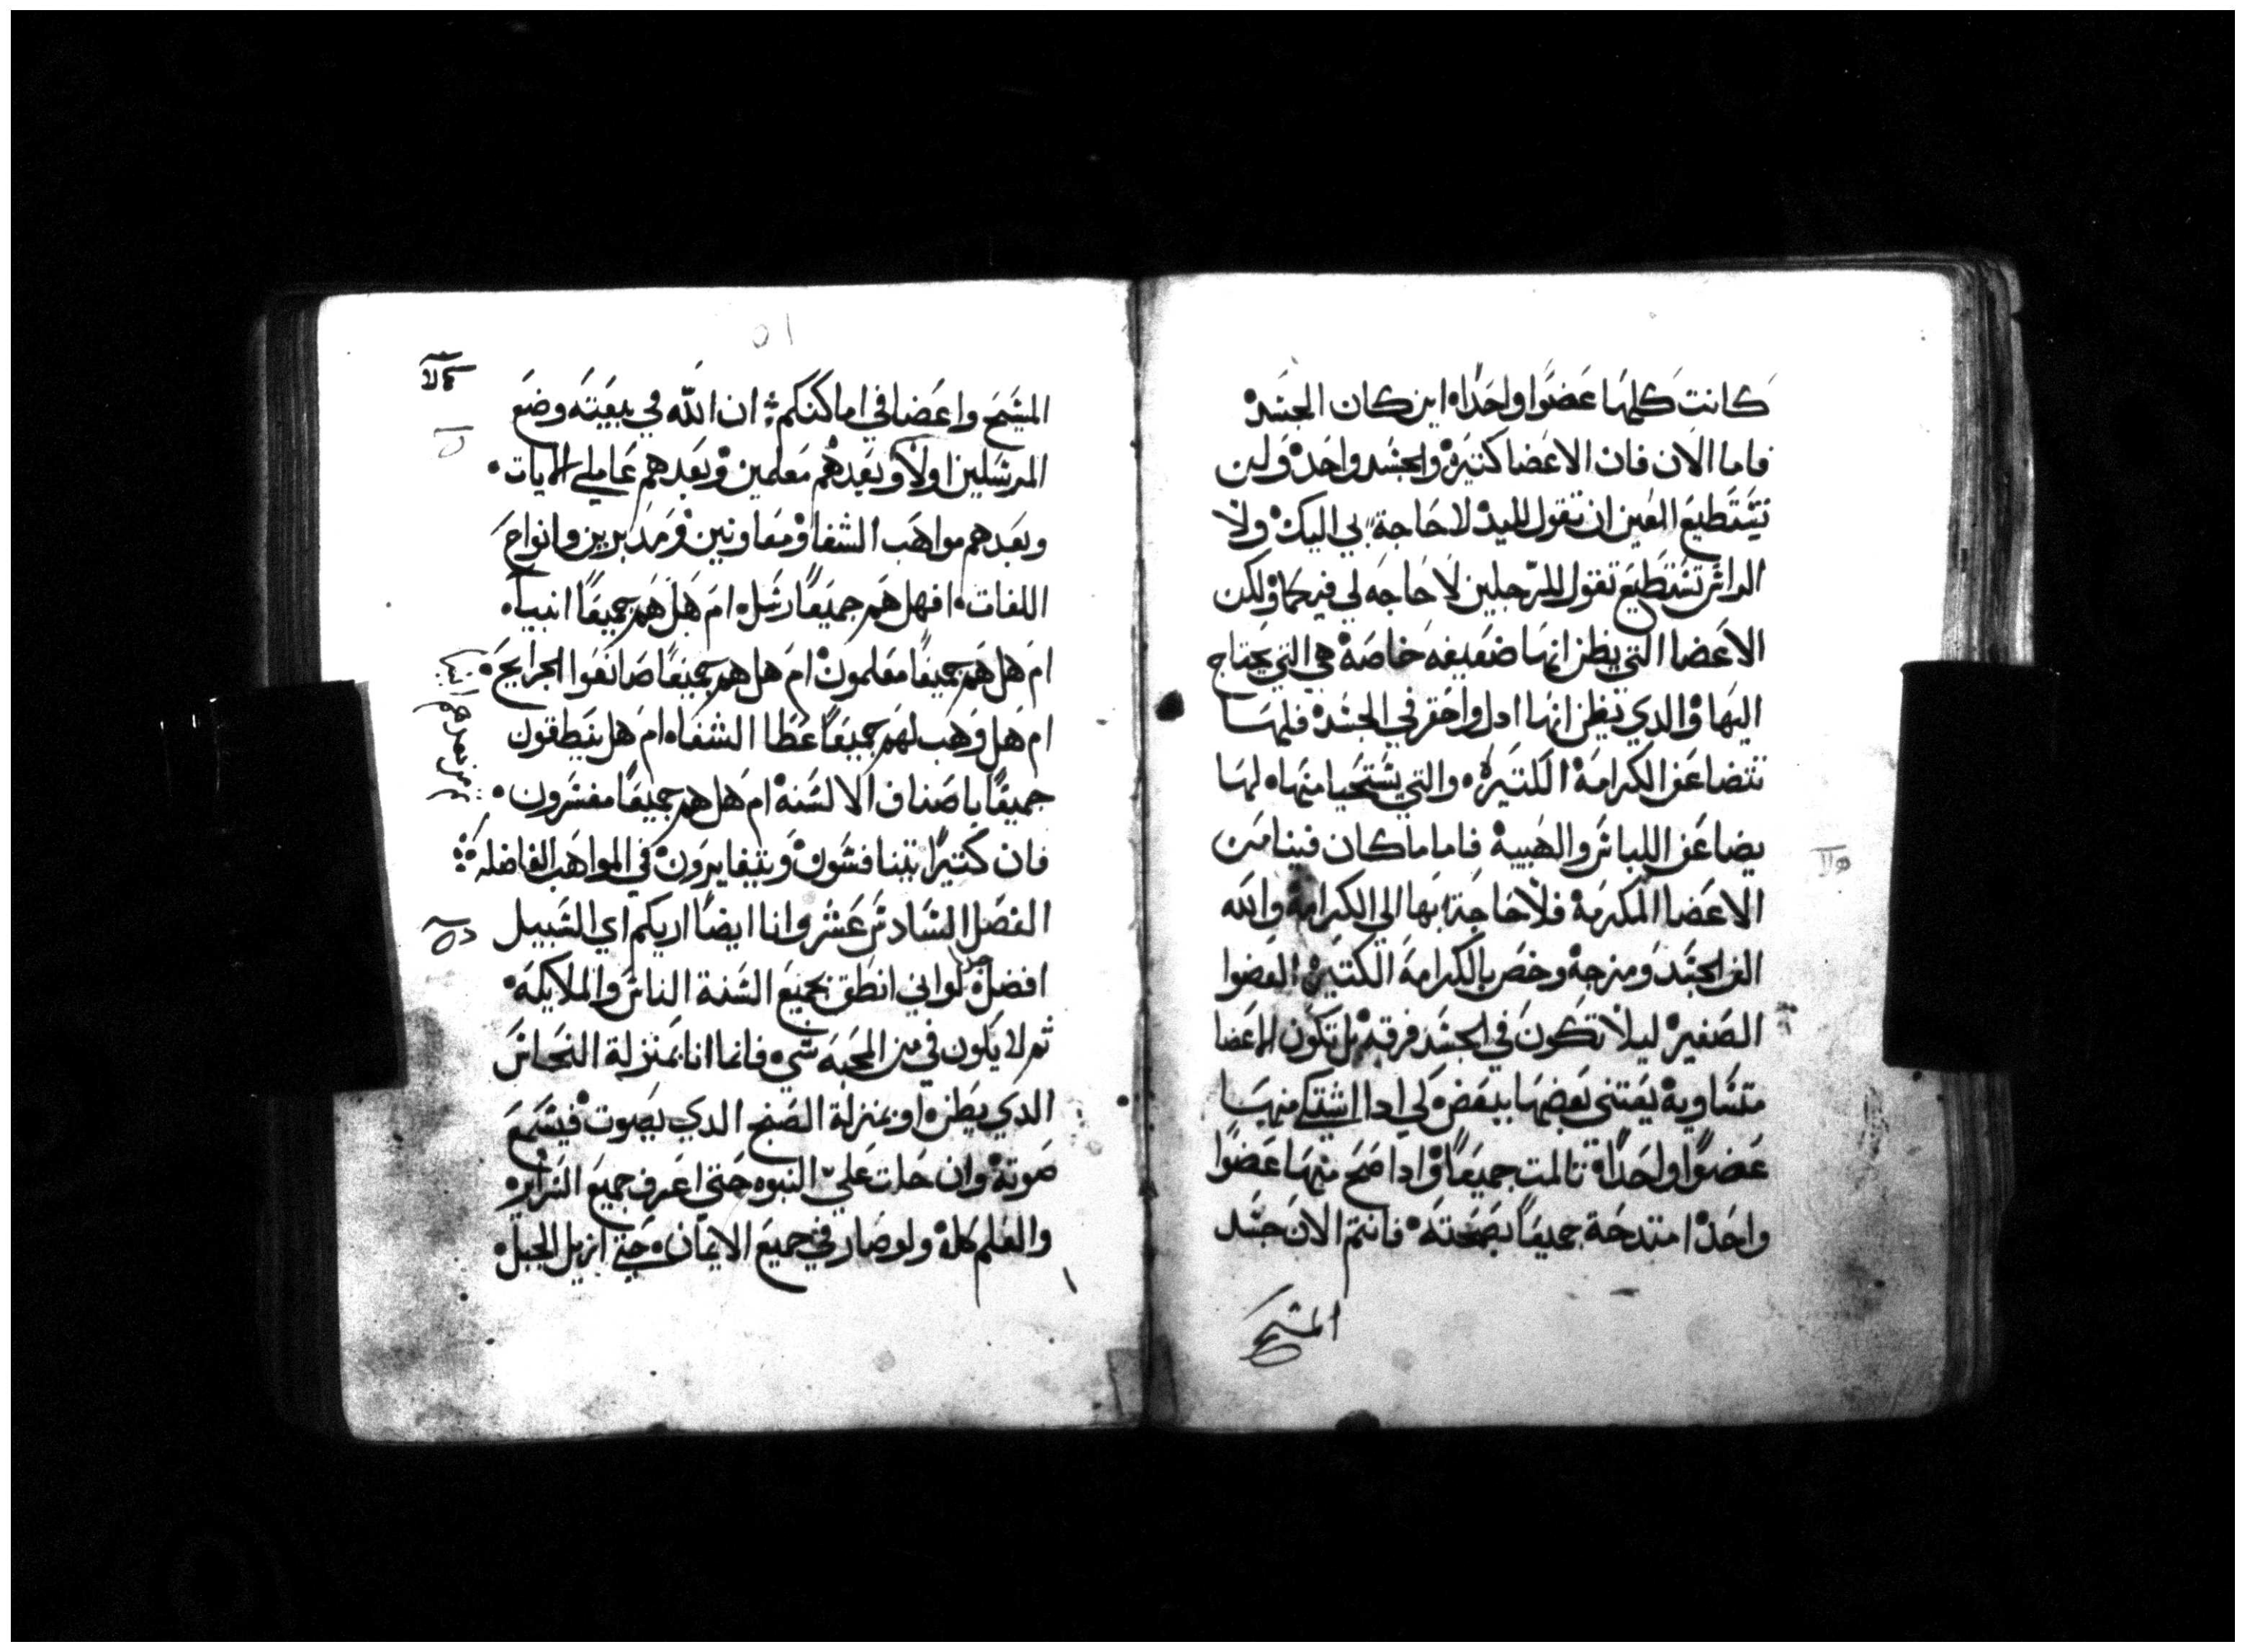 كانت كلها عضوا واحدا اين كان الجسد
فاما الان فان الاعضا كتيرة والجسد واحد ولن
تستطيع العين ان تقول لليد لا حاجة بي اليك ولا
الراس تستطيع تقول للرجلين لا حاجه لي فيكما ولكن
الاعضا التي يظن انها ضعيفه خاصة هي التي يحتاج
اليها والدي نظن انها ادل واحقر في الجسد فلها
تتضاعف الكرامة الكتيرة والتي يستحيا منها لها
يضاعف اللباس والهيبة فاما ما كان فينا من
الاعضا المكرمة فلا حاجة بها الي الكرامة والله
الف الجسد ومزجه وخص بالكرامة الكتيرة العضوا
الصغير ليلا تكون في الجسد فرقة بل تكون الاعضا
متساوية يعتني بعضها ببعض لي ادا اشتكي منها
عضوا واحدا تالمت جميعا وادا صح منها عضوا
واحد امتدحة جميعا بصحته فانتم الان جسد
المسيح
٥١
المسيح واعضا في اماكنكم ان الله في بيعته وضع
المرسلين اولا وبعدهم معلمين وبعدهم عاملي الايات
وبعدهم مواهب الشفا ومعاونين ومدبرين وانواع
اللغات افهل هم جميعا رسل ام هل هم جميعا انبيا
ام هل هم جميعا معلمون ام هل هم جميعا صانعوا الجرايح
ام هل وهب لهم جميعا عطا الشفا ام هل ينطقون
جميعا باصناف الالسنة ام هل هم جميعا مفسرون
فان كتيرا يتنافسون ويتغايرون في المواهب الفاضله
الفصل السادس عشر وانا ايضا اريكم اي السبيل
افضل لواني انطق بجميع السنة الناس والملايكة
تم لا يكون في من المحبه شي فانما انا بمنزلة النحاس
الدي يطن او بمنزلة الصنج الدي يصوت فيسمع
صوتة وان حلت علي النبوه حتي اعرف جميع السراير
والعلم كلة ولو صار في جميع الايمان حتي ازيل الجبل